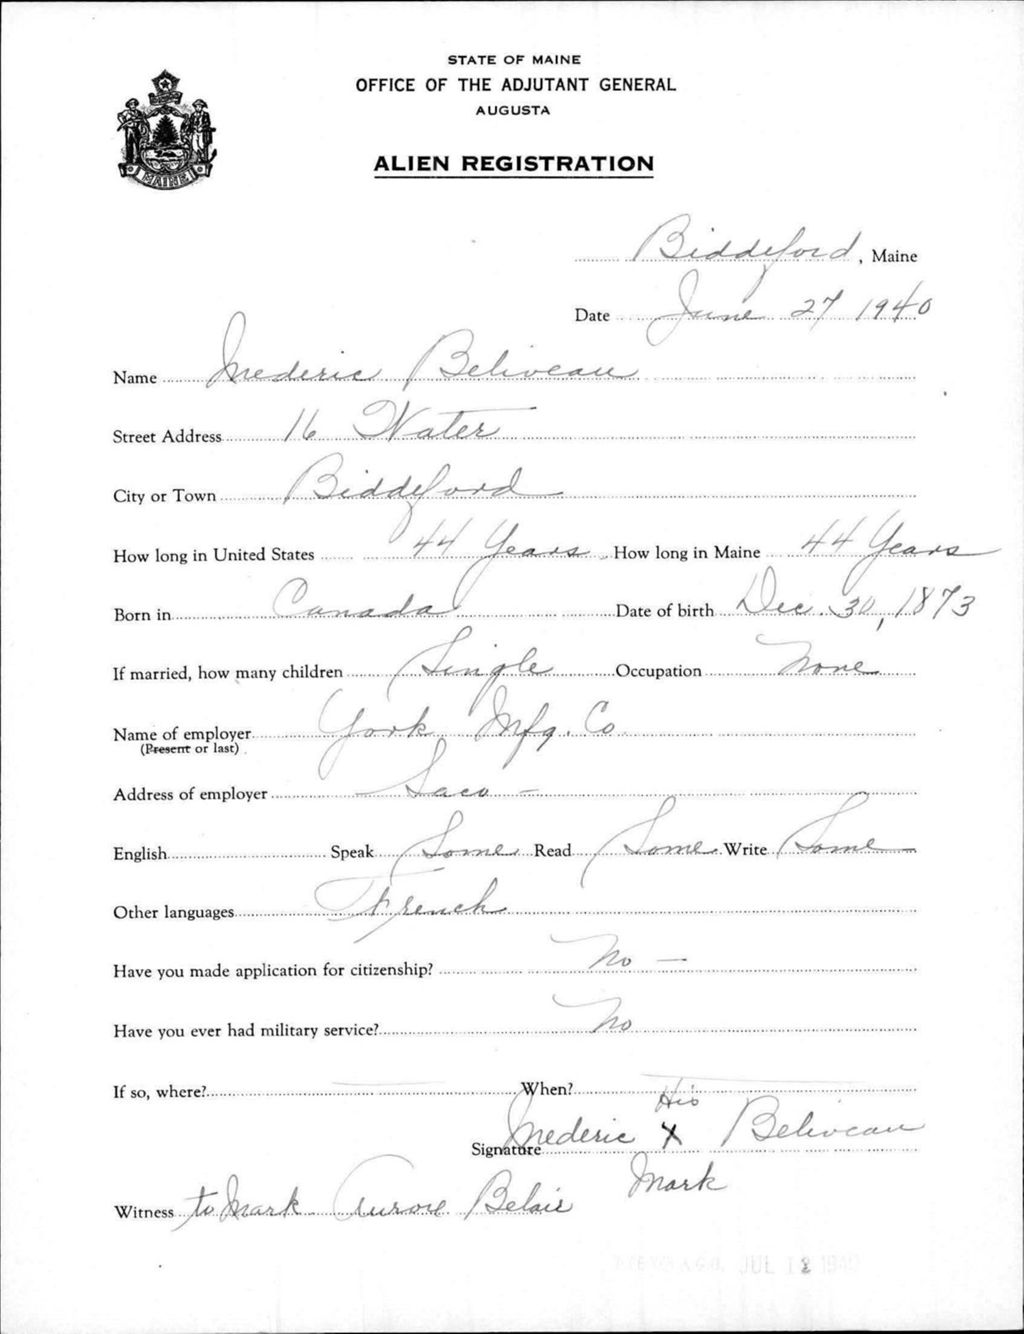 STATE OF MAINE
OFFICE OF THE ADJUTANT GENERAL
AUGUSTA
MAINE
ALIEN REGISTRATION
Biddeford, Maine
Date June 27 1940
Name Mederic Beliveau
Street Address 16 Water
City or Town Biddeford
How long in United States 44 Years How long in Maine 44 Years
Born in Canada Date of birth Dec. 30, 1873
If married, how many children Single Occupation None
Name of employer York Mfg. Co
(Present or last)
Address of employer Saco -
English Speak Some Read Some Write Some
Other languages French
Have you made application for citizenship? No -
Have you ever had military service? No
If so, where? When?
His
Signature Mederic X Beliveau
Mark
Witness to Mark Aurore Belair
A.G.O. JUL 12 1940